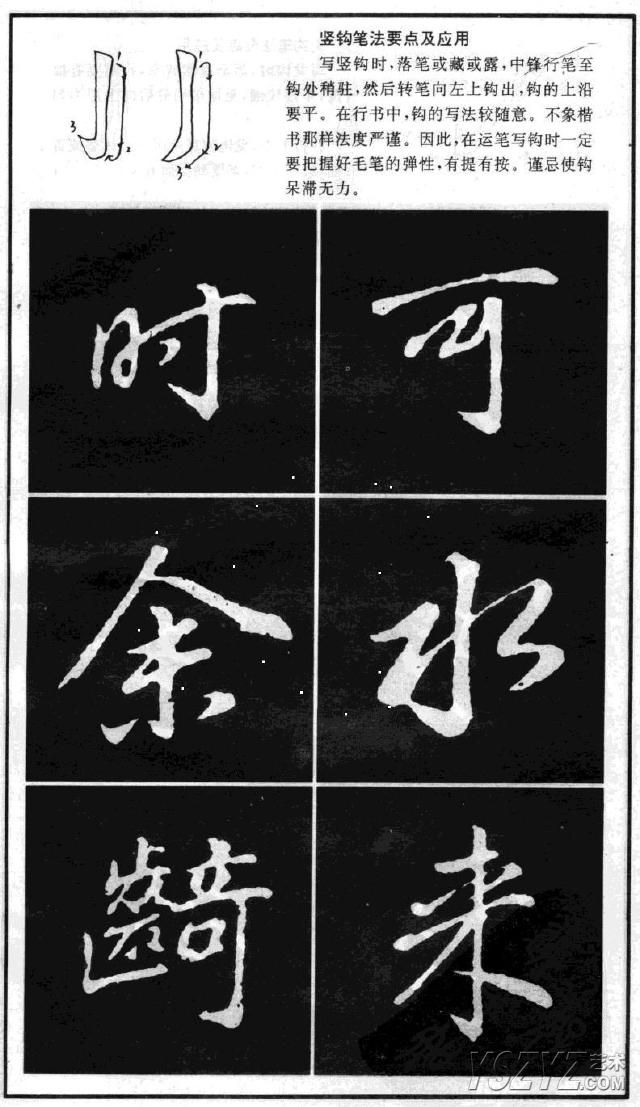 竖钩笔法要点及应用
写竖钩时，落笔或藏或露，中锋行笔至
钩处稍驻，然后转笔向左上钩出，钩的上沿
要平。在行书中，钩的写法较随意。不象楷
书那样法度严谨。因此，在运笔写钩时一定
要把握好毛笔的弹性，有提有按。谨忌使钩
呆滞无力。
时 可
余 水
齮 来
YSZYZ艺术
.COM